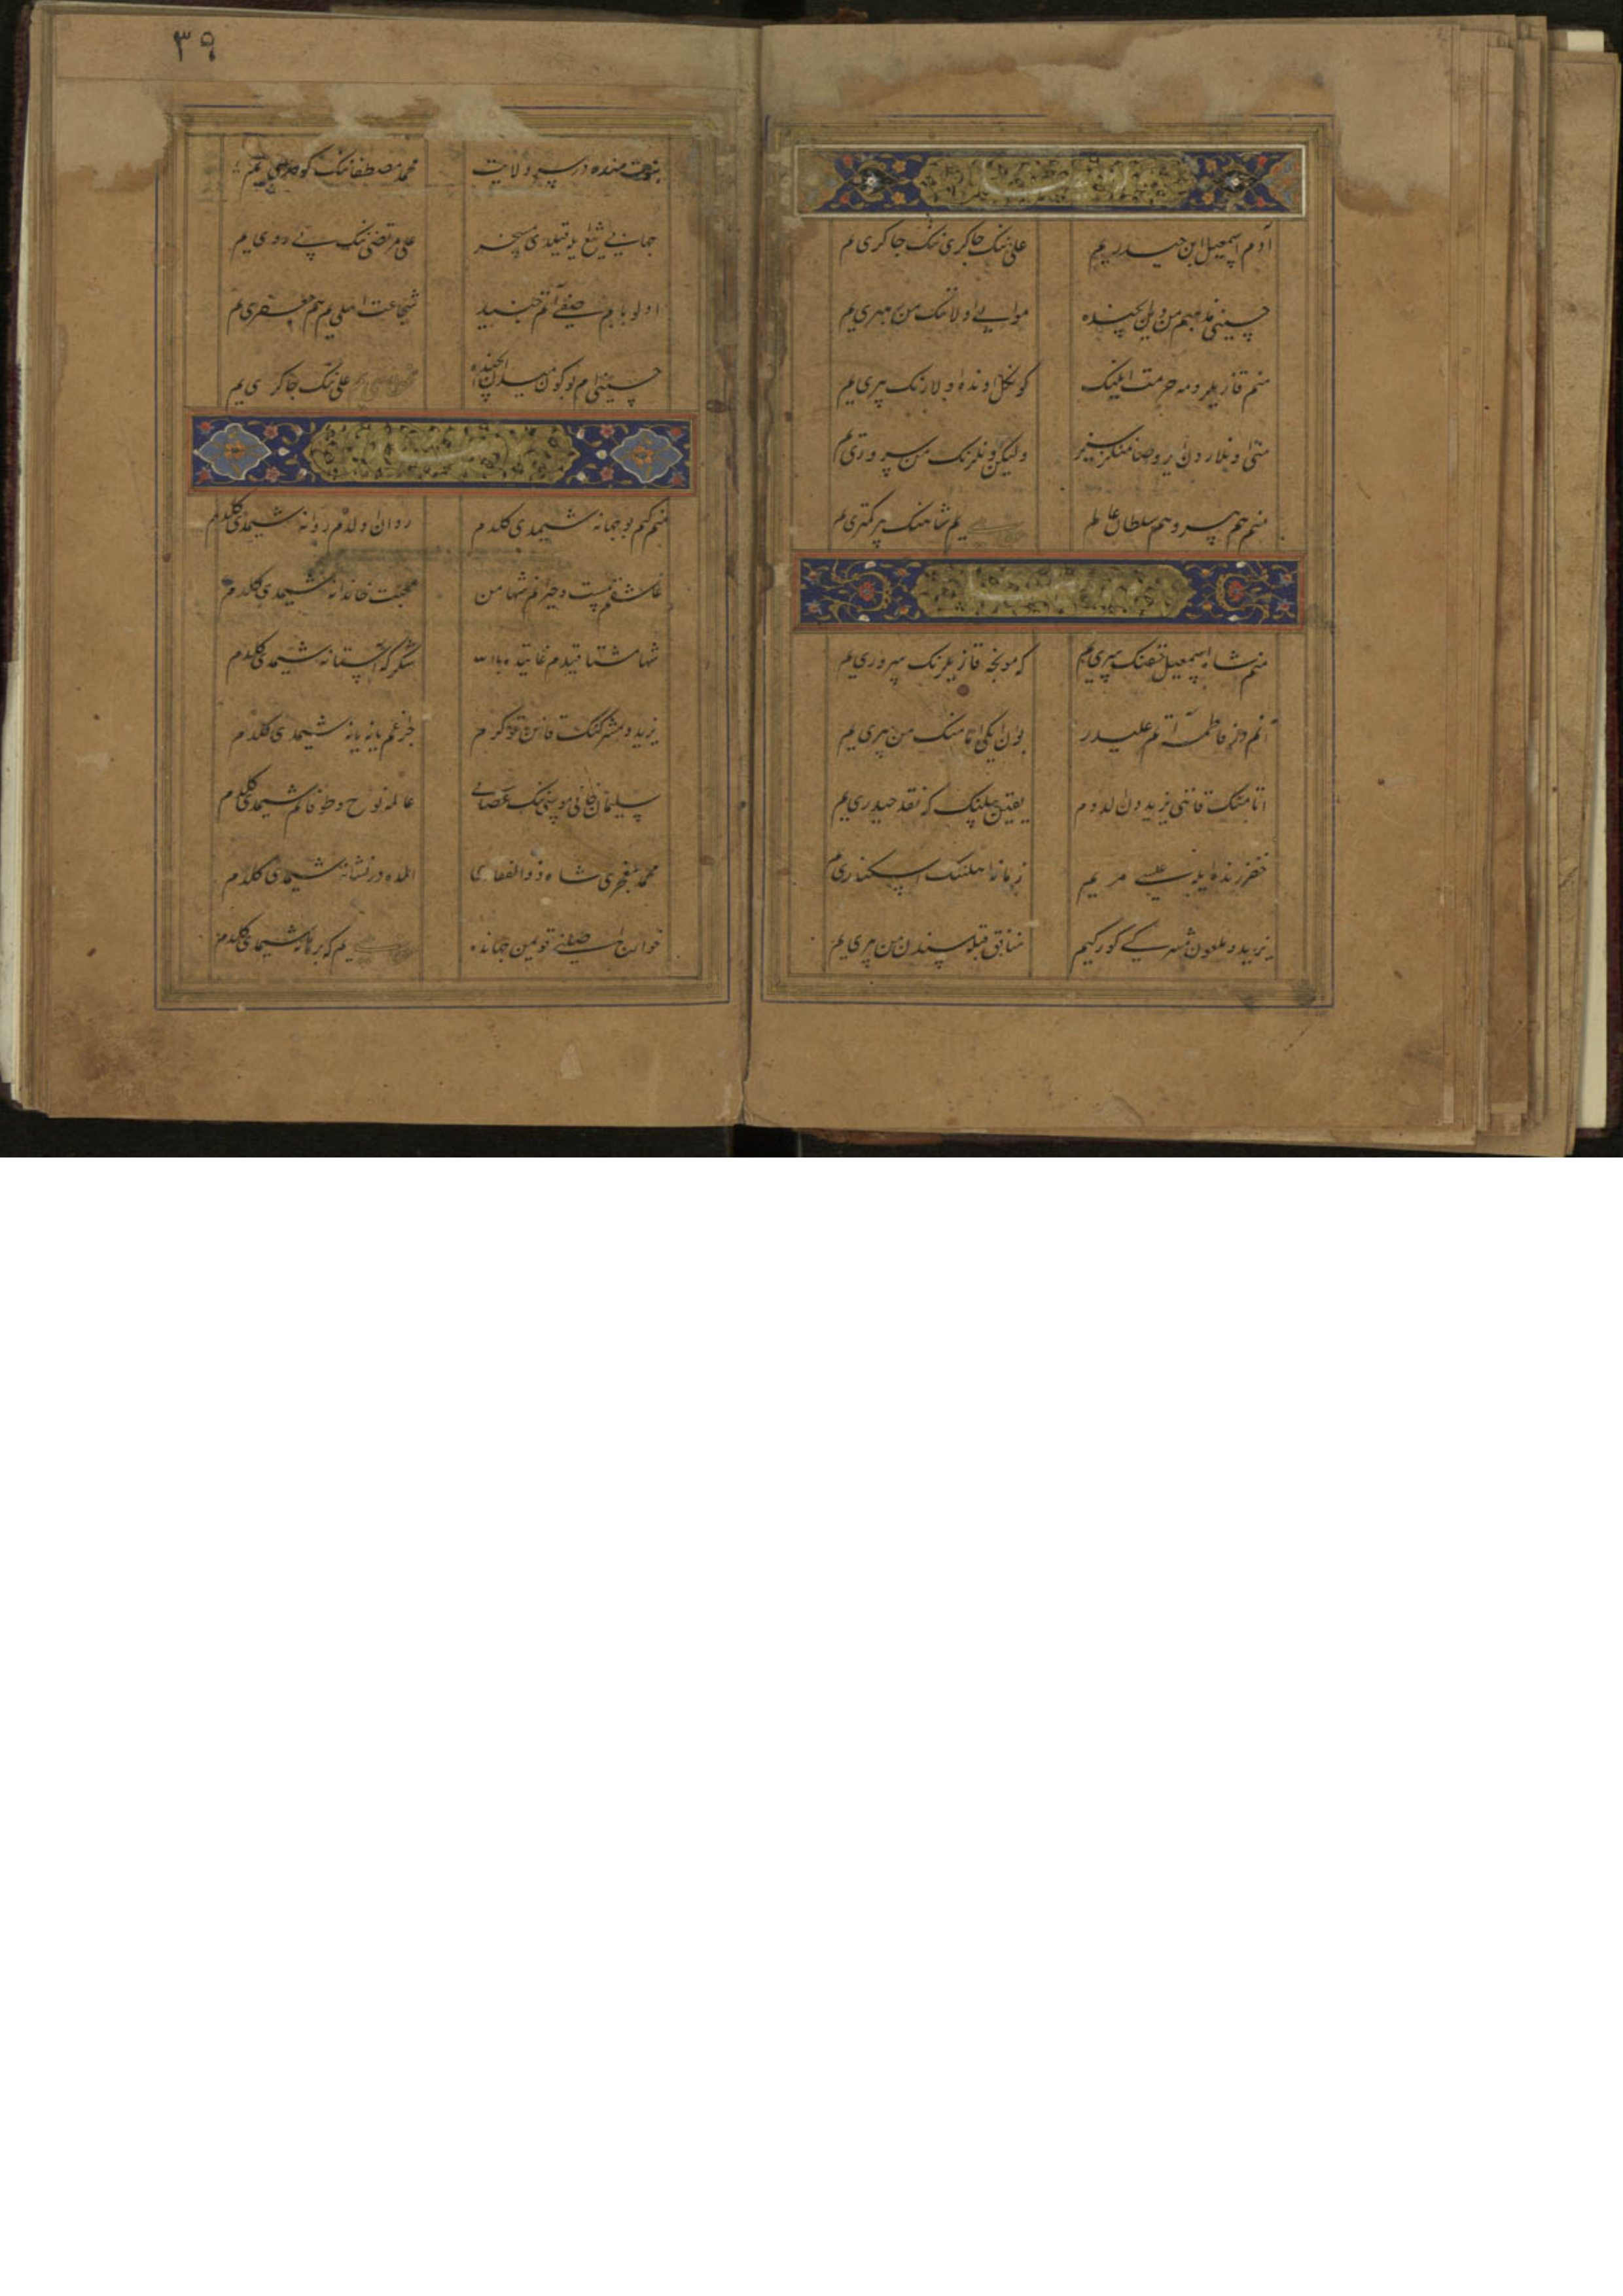 ۳۹
آدم اسمعیل ابن حیدریم علی ننک جاکری ننک جاکری م
حسینی مذهبم من دین ایچنده موالی اولاننک من مهری م
منم قازیلرومه حرمت ایلینک کونکل اونده اولارنک پری یم
ولیکن اونلرنک من سروری م
منم هم پیر و هم سلطان عالم یم شاهنک پر کمتری م
منم شاه اسمعیل حقنک سری یم که مونجه قازیلرنک سروری یم
آنم دور فاطمه آتم علیدر بو اون ایکی امامنک من پری یم
اتامننک قاننی یزیددن الدوم یقین بیلینک که نقد حیدری یم
خضر زنده ایله عیسی مریم زمانه اهلننک اسکندری م
یزید و ملعون مشرکی کورکیم منافق قبله سندن من بری یم
نبوت منده در سر ولایت محمد مصطفاننک کوهری یم
جهانی تیغ یله قیلدی مسخر علی مرتضی ننک پی روی یم
اولو بابام صفی آتم جنید شجاعت اهلی یم هم جعفری م
حسینی ام بو کون میدان ایچنده علی ننک جاکری یم
منم کم بو جهانه شیمدی کلدم روان اولدم روانه شیمدی کلدم
عاشقم مست و حیرانم شها من محبت خاندانه شیمدی کلدم
شها مشتاقیدم غایتده بالله شکر که آستانه شیمدی کلدم
یزید و مشرکنک قانین توکرم جزغم یانه یانه شیمدی کلدم
سلیمان خاتمی موسی ننک عصاسی عالمه نوح و طوفانم شیمدی کلدم
محمد معجزی شاه ذوالفقاری المده در نشانه شیمدی کلدم
خوارج اصلنی قویمن جهانده یم که برهانه شیمدی کلدم